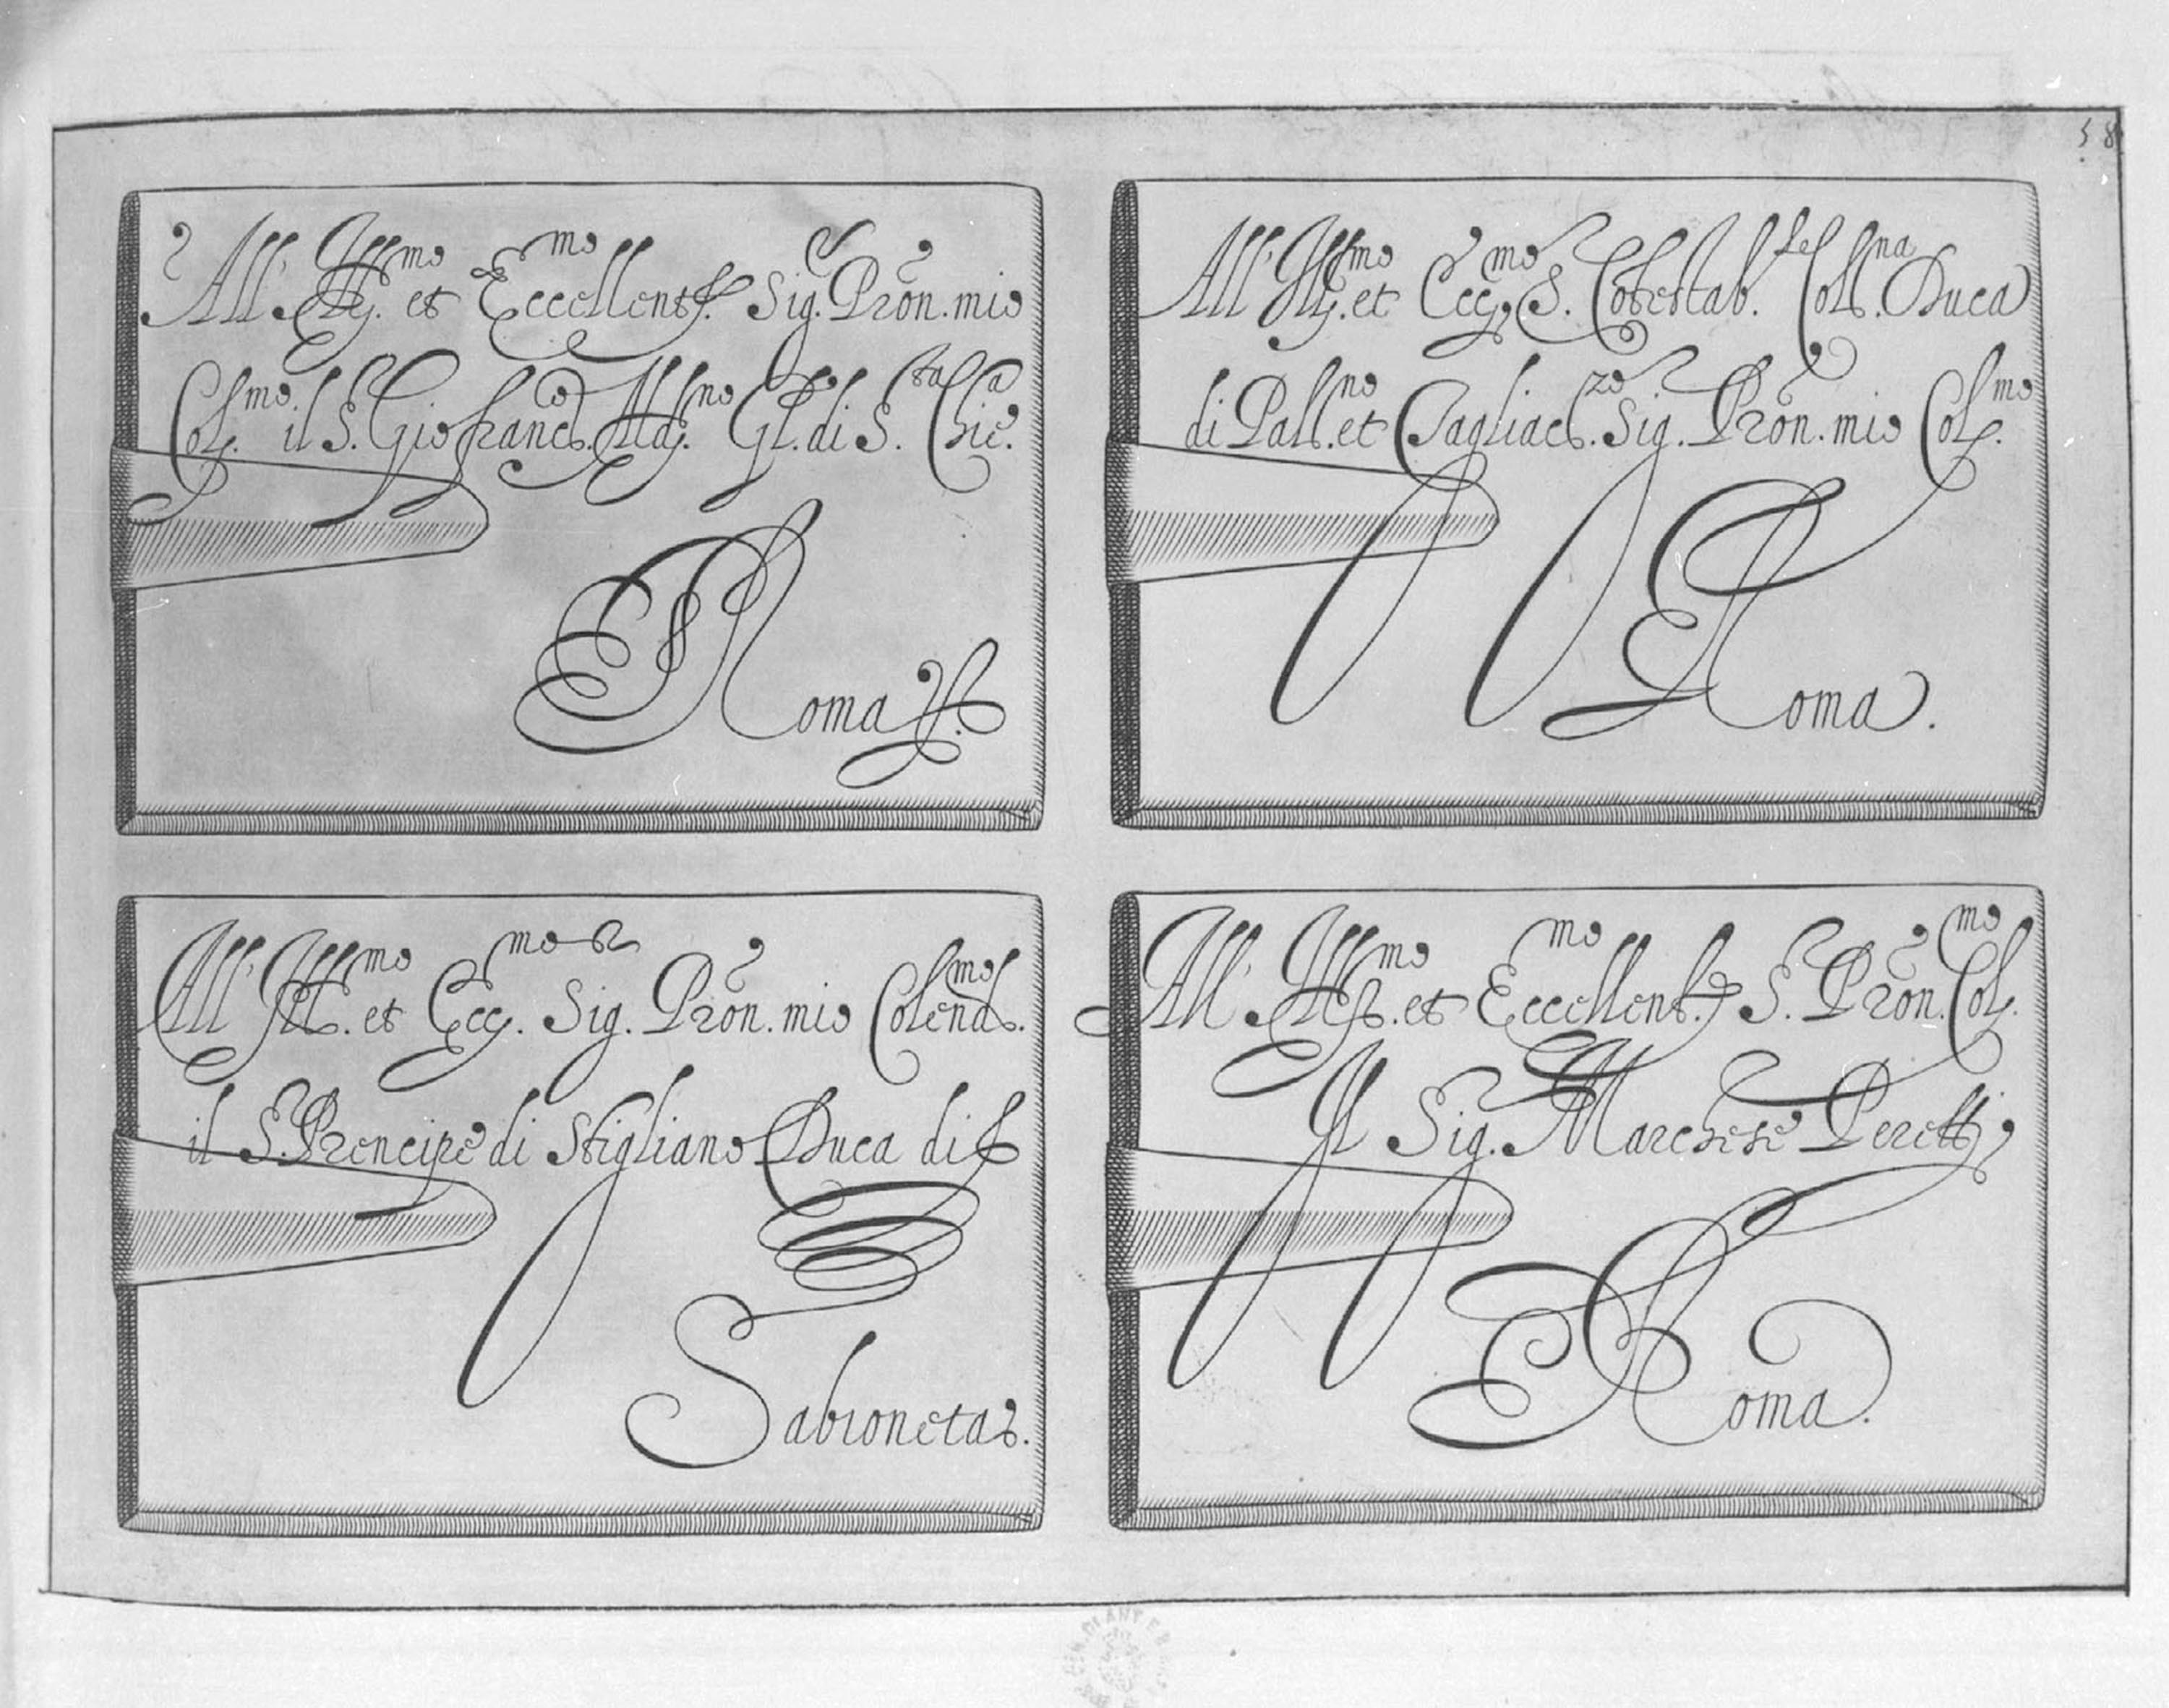 58
All' Ill.mo et Eccellent.mo Sig. Pron. mio
Col.mo il S. Gio franc.o Ald.no Gl. di S.ta Chie.a
Roma
All' Ill.mo et Ecc.mo S. Cotestab.le Coll.na Duca
di Pall.no et Tagliac.zo Sig. Pron. mio Col.mo
Roma.
All' Ill.mo et Ecc.mo Sig. Pron. mio Colend.mo
il S. Prencipe di Stigliano Duca di
Sabioneta.
All' Ill.mo et Eccellent.mo S. Pron. Col.mo
Il Sig. Marchese Peretti
Roma.